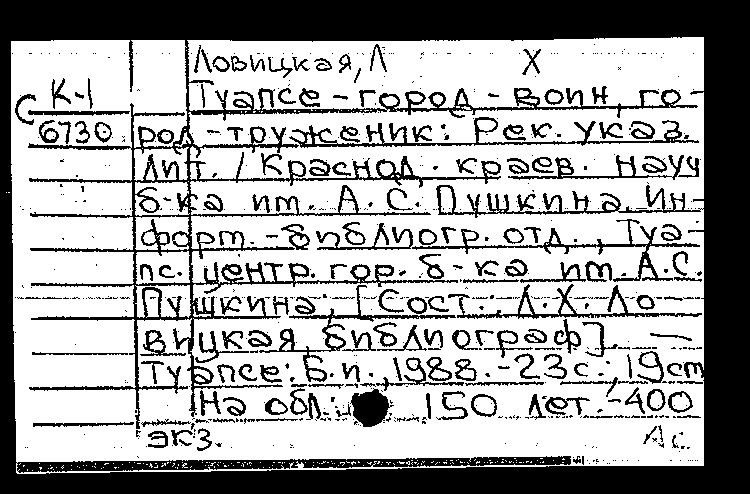 Ловицкая, Л Х
С К-1 Туапсе - город - воин, го-
6730 род - труженик: Рек. указ.
лит. / Краснод. краев. науч
б-ка им. А.С. Пушкина. Ин-
форм. - библиогр. отд., Туа-
пс. центр. гор. б-ка им. А.С.
Пушкина; [Сост.: Л.Х. Ло-
вицкая, библиограф]. —
Туапсе: Б.и., 1988. - 23 с.; 19 cm
На обл.: 150 лет. - 400
экз. Ас